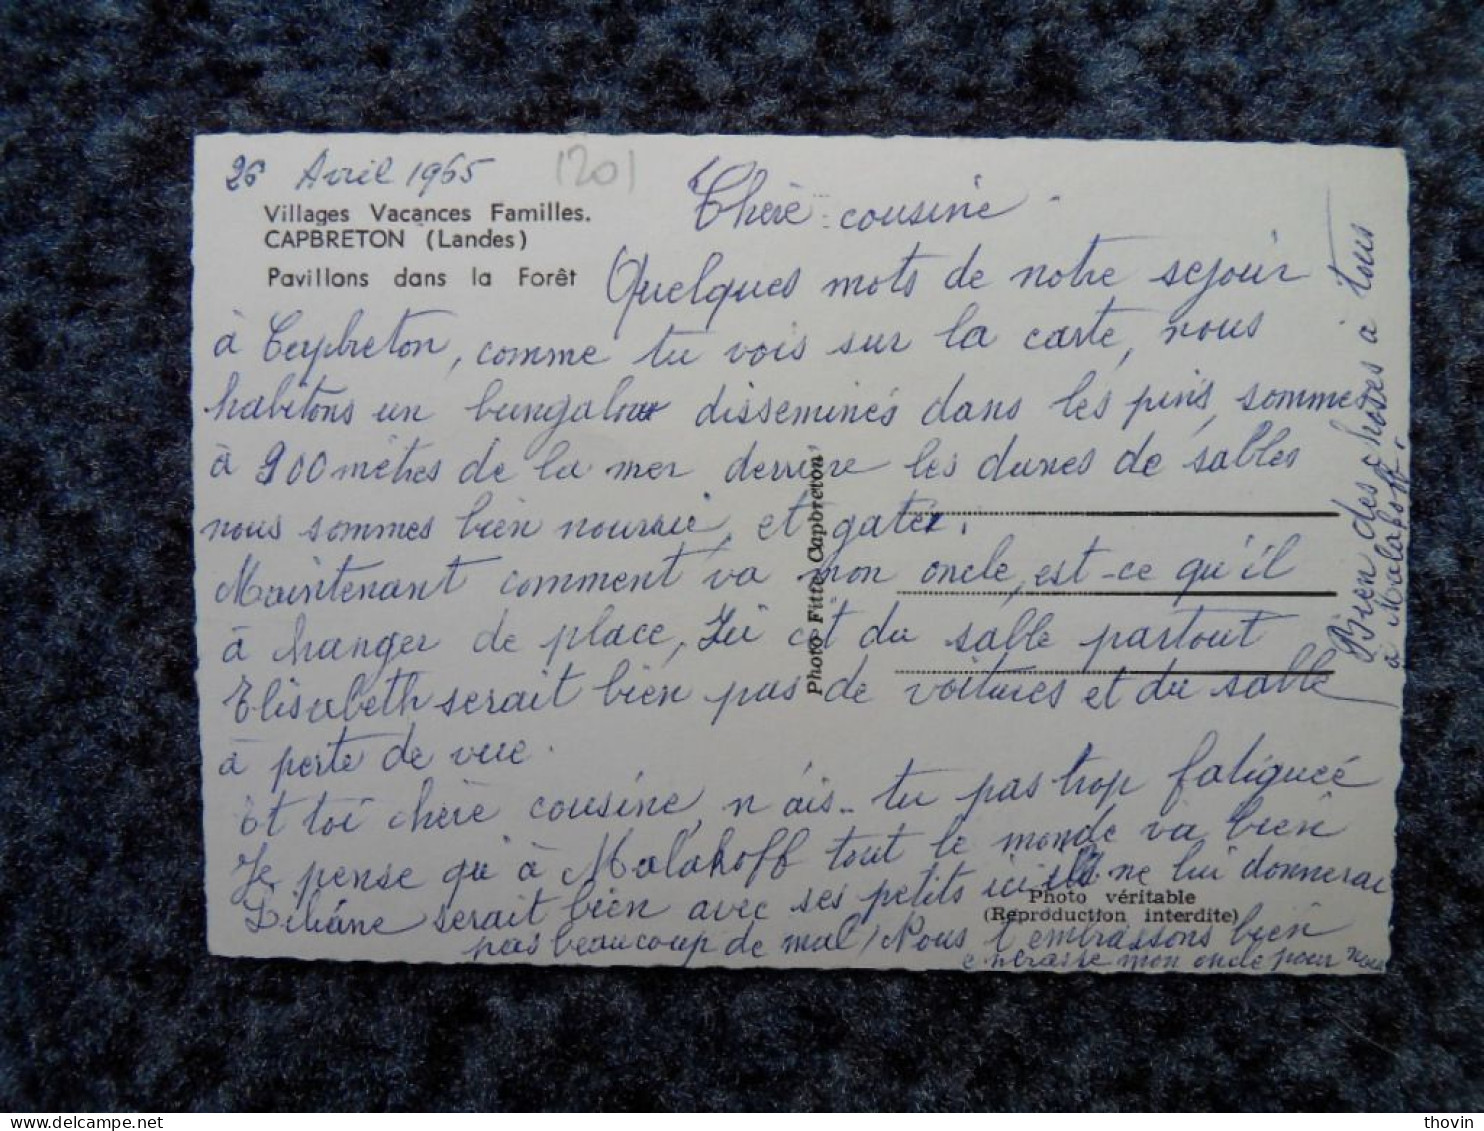 26 Avril 1965
1201
Villages Vacances Familles.
CAPBRETON (Landes)
Pavillons dans la Forêt
Chère cousine
Quelques mots de notre sejour
à Capbreton, comme tu vois sur la carte, nous
habitons un bungalow disseminés dans les pins, sommes
à 900 mètres de la mer derrière les dunes de sables
nous sommes bien nourrie, et gatée.
Maintenant comment va mon oncle, est-ce qu'il
à changer de place, Ici c'et du sable partout
Elisabeth serait bien pas de voitures et du sable
à perte de vue.
Et toi chère cousine, n'ais-tu pas trop fatiguée
Je pense qu'à Malakoff tout le monde va bien
Liliane serait bien avec ses petits ici ils ne lui donnerai
pas beaucoup de mal, Nous t'embrassons bien
embrasse mon oncle pour nous
Bien des choses a tous
à Malakoff.
Photo Fitte, Capbreton
Photo véritable
(Reproduction interdite)
thovin